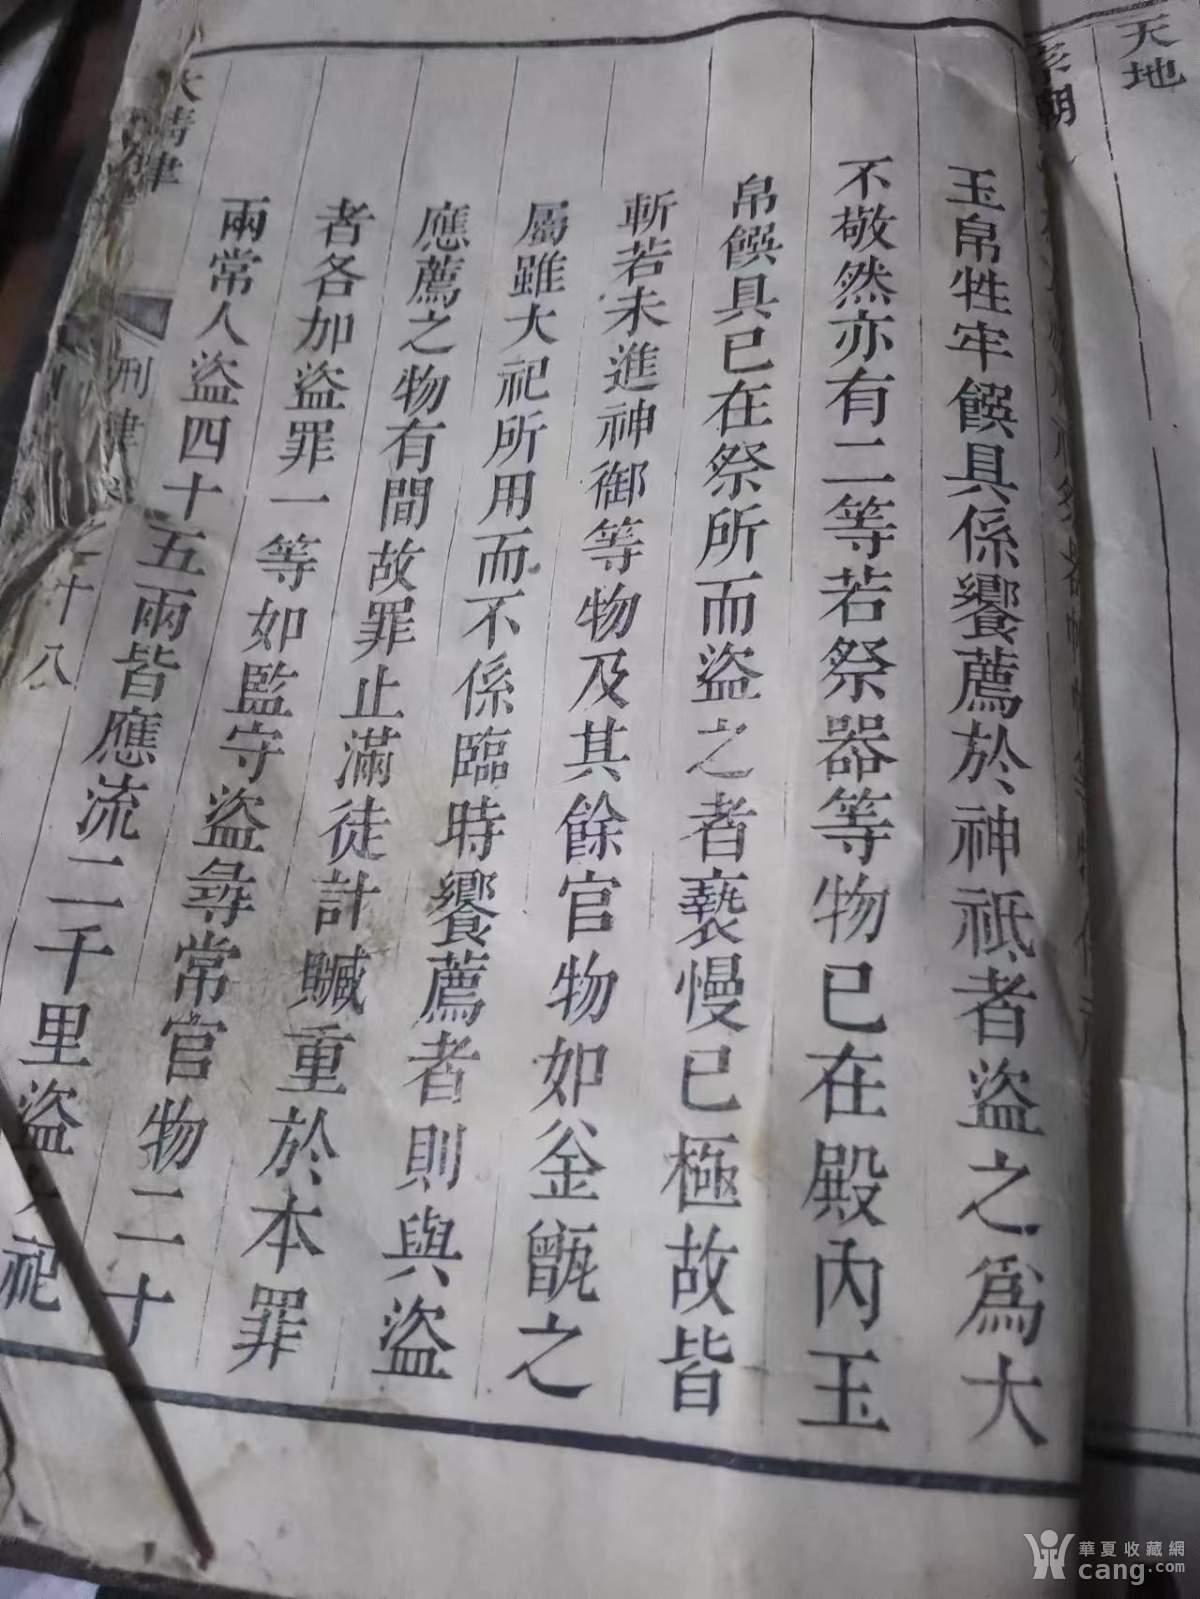 天地
玉帛牲牢饌具係饗薦於神祇者盜之為大
不敬然亦有二等若祭器等物已在殿內玉
帛饌具已在祭所而盜之者褻慢已極故皆
斬若未進神御等物及其餘官物如釜甑之
屬雖大祀所用而不係臨時饗薦者則與盜
應薦之物有間故罪止滿徒計贓重於本罪
者各加盜罪一等如監守盜尋常官物二十
兩常人盜四十五兩皆應流二千里盜大祀
大清律
刑律
二十八
華夏收藏網
cang.com